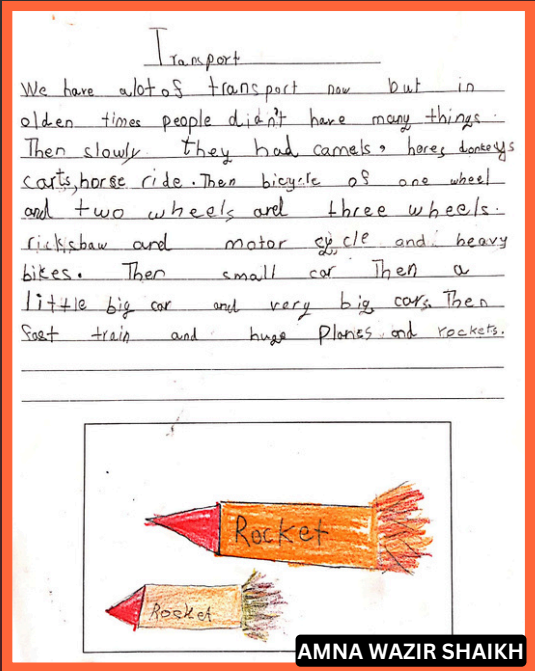 Transport
We have alot of transport now but in
olden times people didn't have many things.
Then slowly they had camels, hores, donkeys
carts, horse ride. Then bicycle of one wheel
and two wheels and three wheels.
rickshaw and motor cycle and heavy
bikes. Then small car Then a
little big car and very big cars. Then
fast train and huge Planes and rockets.
Rocket
Rocket
AMNA WAZIR SHAIKH